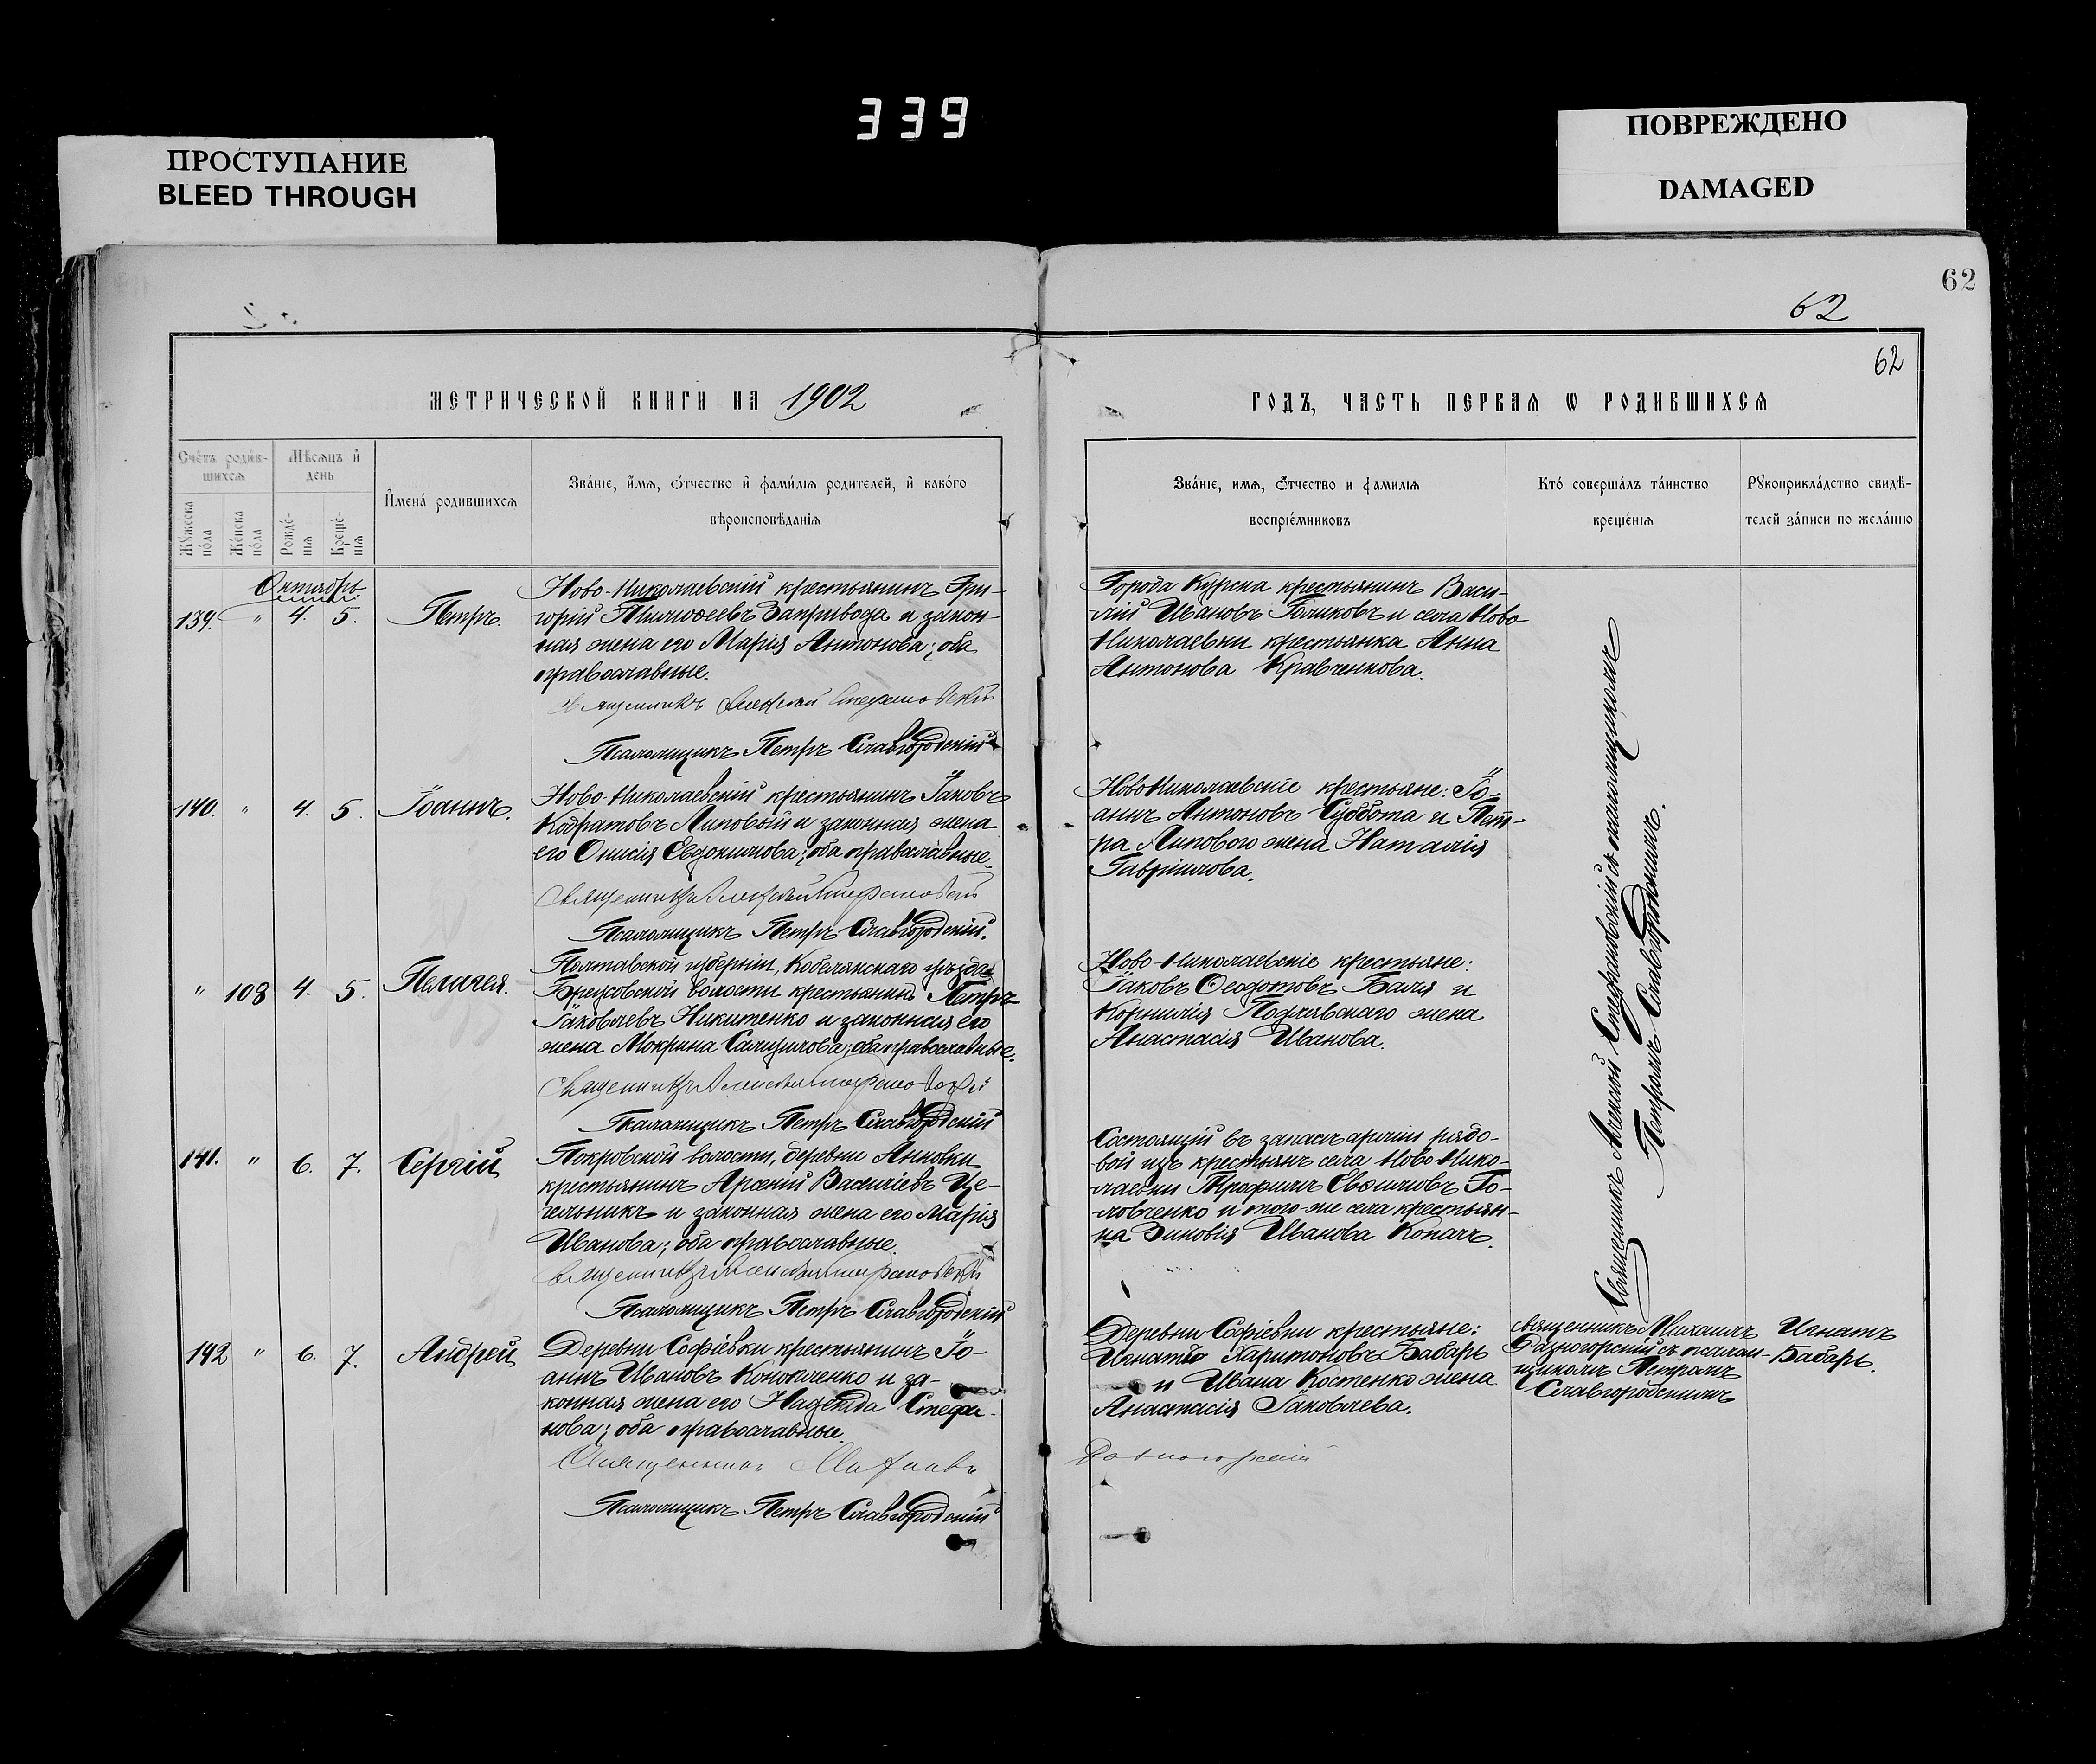 339
ПРОСТУПАНИЕ
BLEED THROUGH
ПОВРЕЖДЕНО
DAMAGED
62
62
62
МЕТРИЧЕСКОЙ КНИГИ НА 1902
ГОДЪ, ЧАСТЬ ПЕРВАЯ Ѡ РОДИВШИХСЯ
Счéтъ роди́в-
шихся
Мѣсяцъ и҆
день
Мꙋ́жеска
по́ла
Же́нска
по́ла
Рожде́-
нія
Креще́-
нія
И҆мена́ родившихся
Зва́ніе, и҆́мя, ѻ҆́тчество и҆ фами́лія родителей, и҆ како́го
вѣроисповѣ́данія
Зва́ніе, имя, ѻ҆́тчество и фамилія
воспріе́мниковъ
Кто́ соверша́лъ та́инство
креще́нія
Рꙋкоприкла́дство свидѣ́-
телей за́писи по жела́нію
Октябрь
139. " 4. 5. Петръ.
Ново-Николаевскій крестьянинъ Гри-
горій Тимоѳеевъ Запривода и закон-
ная жена его Марія Антонова; оба
православные.
Священникъ Алексѣй Стефановскій
Псаломщикъ Петръ Славгородскій
Города Курска крестьянинъ Васи-
лій Ивановъ Голиковъ и села Ново
Николаевки крестьянка Анна
Антонова Кравченкова.
140. " 4. 5. Іоаннъ.
Ново-Николаевскій крестьянинъ Іаковъ
Кодратовъ Липовый и законная жена
его Онисія Евдокимова; оба православные.
Священникъ Алексѣй Стефановскій
Псаломщикъ Петръ Славгородскій.
Ново Николаевскіе крестьяне: Іо-
аннъ Антоновъ Суббота и Пет-
ра Липового жена Наталія
Гавріилова.
" 108 4. 5. Пелагея.
Полтавской губерніи, Кобелякскаго уѣзда
волости крестьянинъ Петръ
Іаковлевъ Никитенко и законная его
жена Мокрина Самуилова; оба православные.
Священникъ Алексѣй Стефановскій
Псаломщикъ Петръ Славгородскій
Ново-Николаевскіе крестьяне:
Іаковъ Ѳеодотовъ Баля и
Корнилія жена
Анастасія Иванова.
141. " 6. 7. Сергій
Покровской волости, деревни Анновки
крестьянинъ Арсеній Василіевъ Це-
гельникъ и законная жена его Марія
Иванова; оба православные.
Священникъ Алексѣй Стефановскій
Псаломщикъ Петръ Славгородскій
Состоящій въ запасѣ арміи рядо-
вой изъ крестьянъ села Ново Нико-
лаевки Трофимъ Евѳимовъ Го-
ловченко и того-же села крестьян-
ка Зиновія Иванова Копачъ.
Священникъ Алексѣй Стефановскій съ псаломщикомъ
Петромъ Славгородскимъ.
142 " 6. 7. Андрей
Деревни Софіевки крестьянинъ Іо-
аннъ Ивановъ Коноваленко и за-
конная жена его Надежда Стефа-
нова; оба православные.
Священникъ Михаилъ
Псаломщикъ Петръ Славгородскій
Деревни Софіевки крестьяне:
Игнатій Харитоновъ Бабарь
и Ивана Костенко жена
Анастасія Іаковлева.
Разногорскій
Священникъ Михаилъ
Разногорскій съ псалом-
щикомъ Петромъ
Славгородскимъ
Игнатъ
Бабарь.